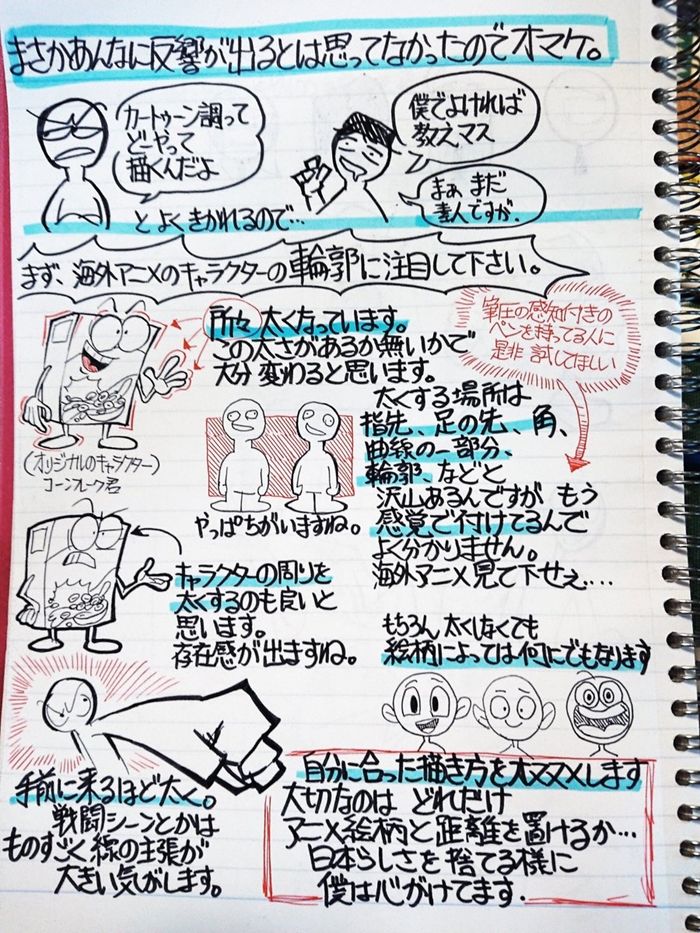 まさかあんなに反響が出るとは思ってなかったのでオマケ。
カートゥーン調って
どーやって
描くんだよ
僕でよければ
教えマス
まぁ まだ
素人ですが.
とよくきかれるので…
まず、海外アニメのキャラクターの輪郭に注目して下さい。
所々 太くなっています。
この太さがあるか無いかで
大分 変わると思います。
筆圧の感知付きの
ペンを持ってる人に
是非 試してほしい
(オリジナルのキャラクター)
コーンフレーク君
やっぱちがいますね。
太くする場所は
指先、足の先、角、
曲線の一部分、
輪郭、などと
沢山あるんですが もう
感覚で付けてるんで
よく分かりません。
海外アニメ見て下せぇ....
キャラクターの周りを
太くするのも良いと
思います。
存在感が出ますね。
もちろん 太くしなくても
絵柄によっては何にでもなります
手前に来るほど太く。
戦闘シーンとかは
ものすごく線の主張が
大きい気がします。
自分に合った描き方をオススメします
大切なのは どれだけ
アニメ絵柄と距離を置けるか…
日本らしさを捨てる様に
僕は心がけてます.